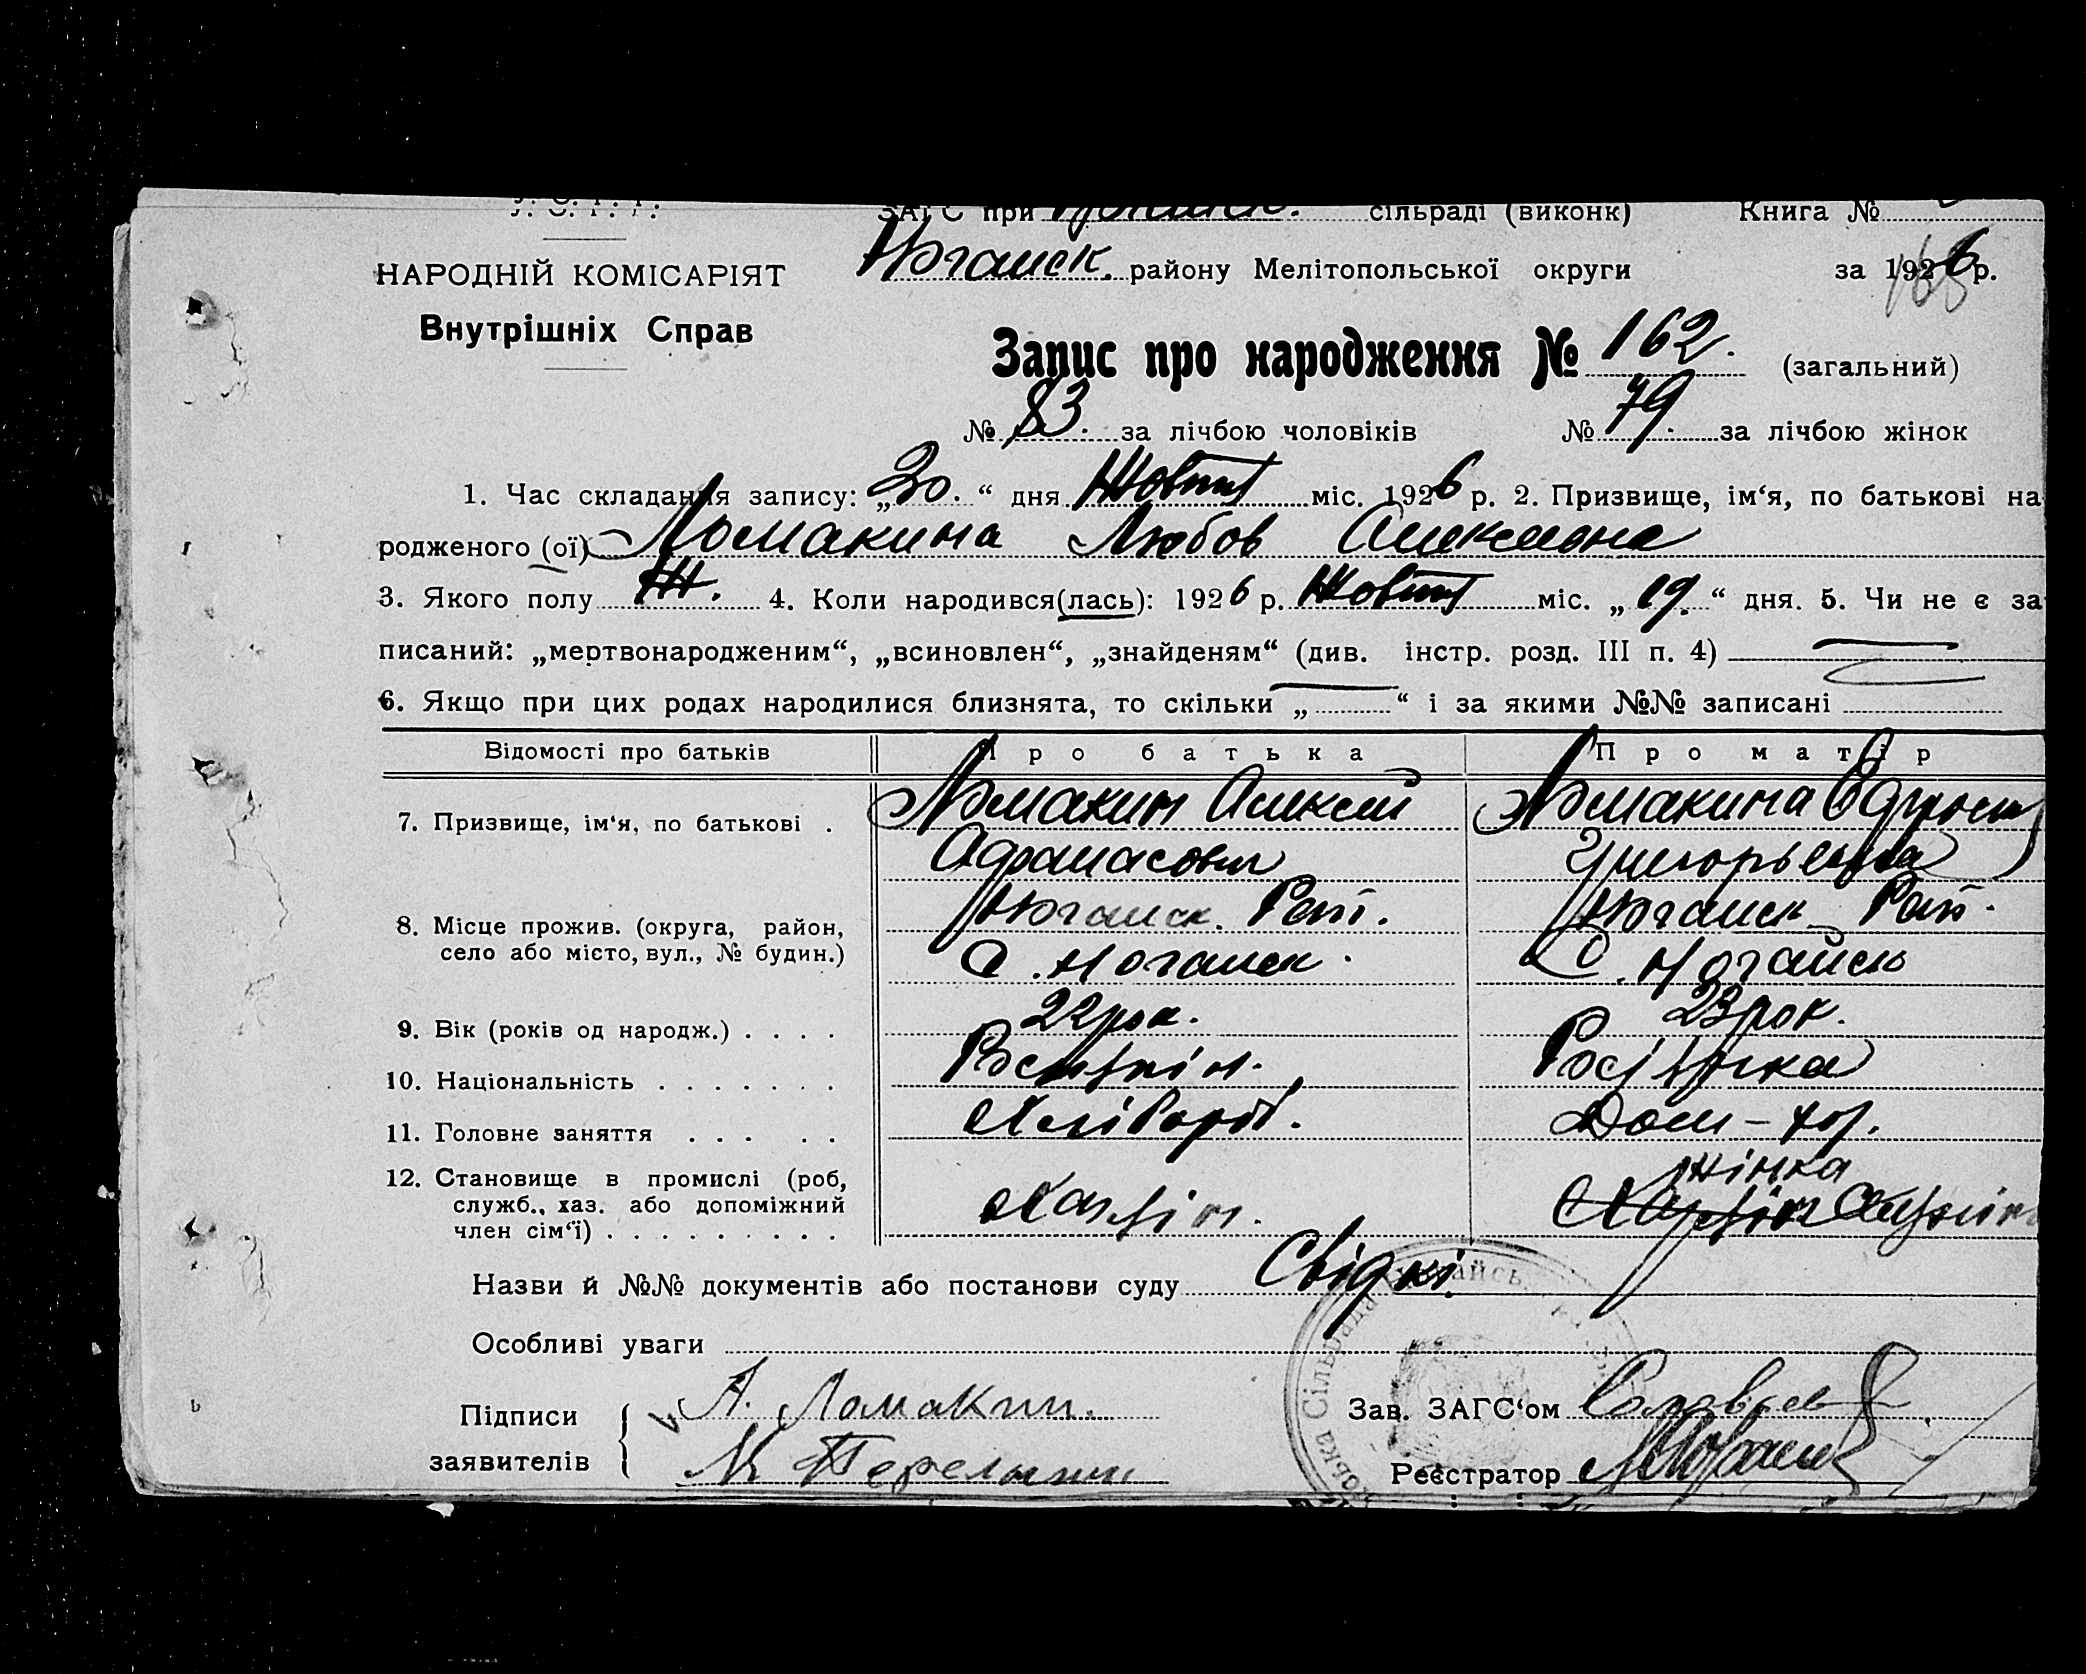 У. С. Р. Р.
ЗАГС при Ногайск. сільраді (виконк) Книга №
НАРОДНІЙ КОМІСАРІЯТ
Ногайск. району Мелітопольської округи за 1926 р.
168
Внутрішніх Справ
Запис про народження № 162. (загальний)
№ 83. за лічбою чоловіків № 79. за лічбою жінок
1. Час складання запису: „30.“ дня Жовтня міс. 1926 р. 2. Призвище, ім‘я, по батькові на
родженого (ої) Ломакина Любов
3. Якого полу Ж. 4. Коли народився(лась): 1926 р. Жовтня міс. „19.“ дня. 5. Чи не є за
писаний: „мертвонародженим“, „всиновлен“, „знайденям“ (див. інстр. розд. III п. 4)
6. Якщо при цих родах народилися близнята, то скільки „ “ і за якими №№ записані
Відомості про батьків Про батька Про матір
7. Призвище, ім‘я, по батькові . Ломакин Алексей Ломакина
Афанасович Григорьевна
8. Місце прожив. (округа, район, Ногайск. Рай. Ногайск Рай.
село або місто, вул., № будин.) С. Ногайск. С. Ногайск
9. Вік (років од народж.) . . . . 22 рок. 23 рок.
10. Національність . . . . . . . Росіянка
11. Головне заняття . . . . . Хлібороб. Дом-хоз.
12. Становище в промислі (роб, жінка
служб., хаз. або допоміжний Хазяін. Хазяін
член сім‘ї) . . . . . . . . .
Назви й №№ документів або постанови суду Свідкі.
Особливі уваги
Підписи А. Ломакин. Зав. ЗАГС‘ом
заявителів М Реєстратор
Сільрада